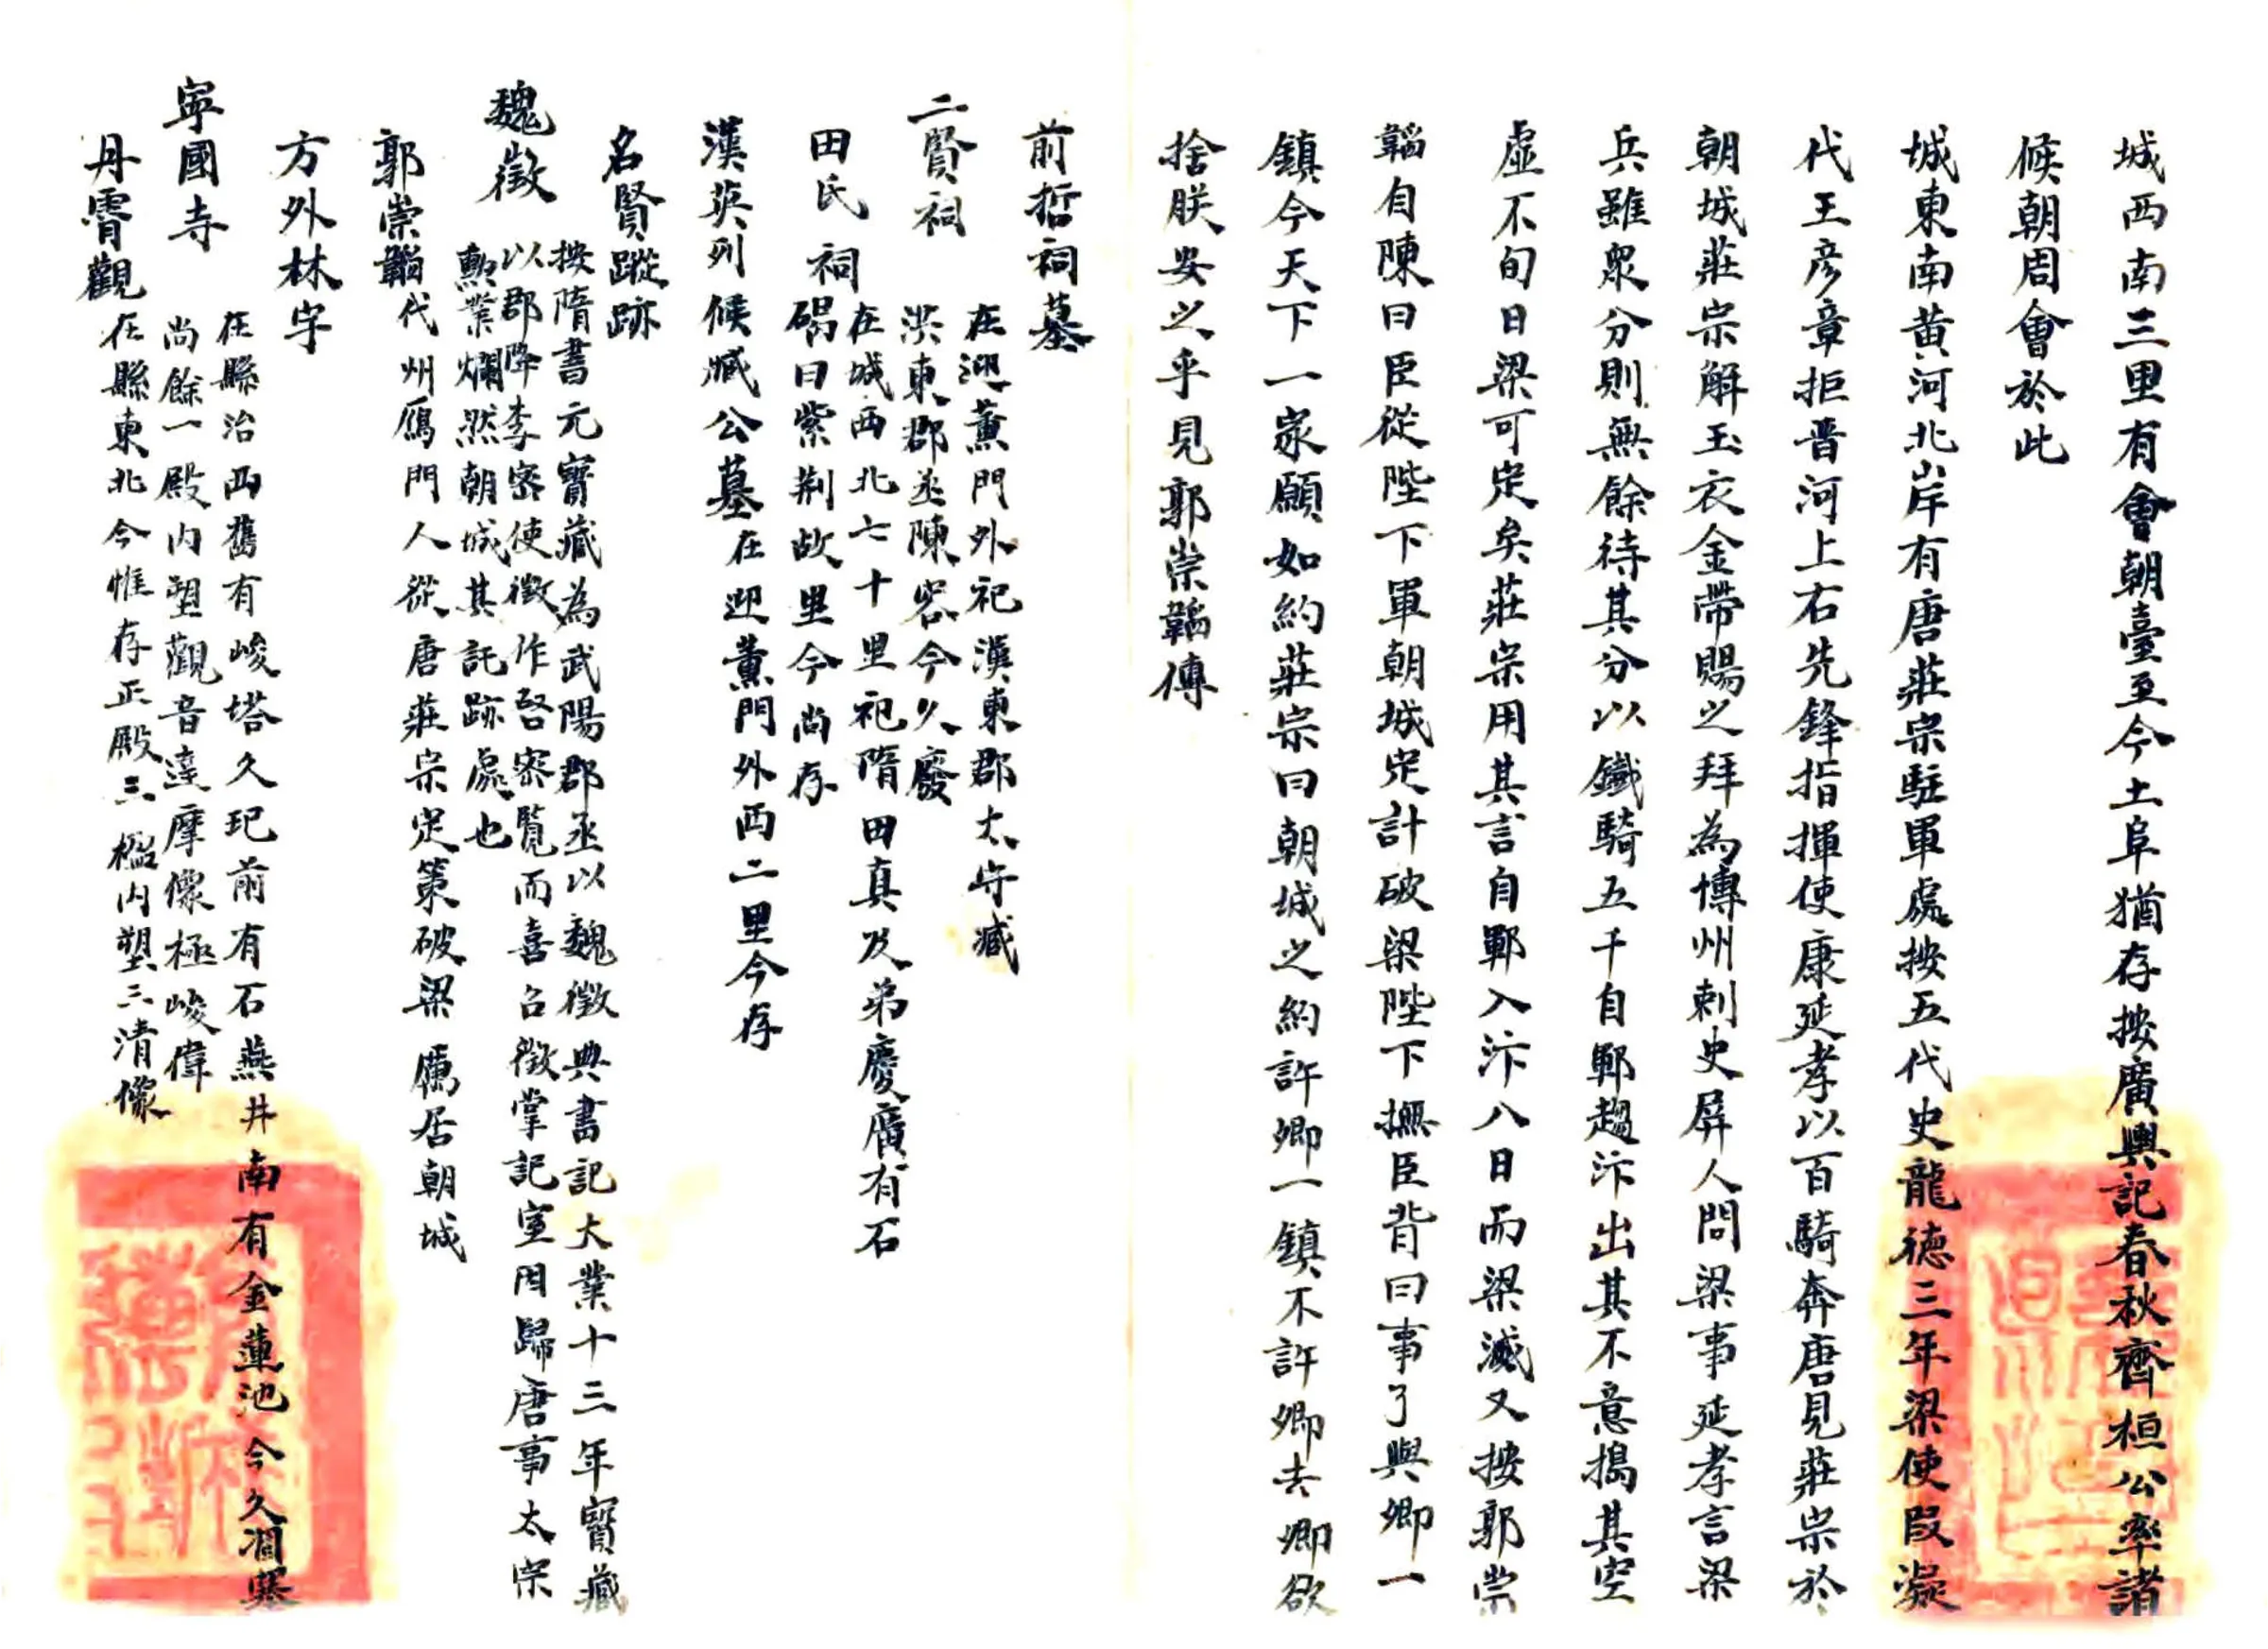 城西南三里有會朝臺至今土阜猶存按廣輿記春秋齊桓公率諸
候朝周會於此
城東南黄河北岸有唐莊宗駐軍處按五代史龍德三年梁使段凝
代王彦章拒晋河上右先鋒指揮使康延孝以百騎奔唐見莊宗於
朝城莊宗解玉衣金帶賜之拜為博州刺史屏人問梁事延孝言梁
兵雖衆分則無餘待其分以鐵騎五千自鄆趨汴出其不意搗其空
虚不旬日梁可定矣莊宗用其言自鄆入汴八日而梁滅又按郭崇
韜自陳曰臣從陛下軍朝城定計破梁陛下撫臣背曰事了與卿一
鎮今天下一家願如約莊宗曰朝城之約許卿一鎮不許卿去卿欲
捨朕安之乎見郭崇韜傳
前哲祠墓
二賢祠
在迎薰門外祀漢東郡太守臧
洪東郡丞陳容今久廢
田氏祠
在城西北七十里祀隋田真及弟慶廣有石
碣曰紫荆故里今尚存
漢英列候臧公墓在迎薰門外西二里今存
名賢蹤跡
魏徵
按隋書元寶藏為武陽郡丞以魏徵典書記大業十三年寶藏
以郡降李密使徵作啓密覽而喜召徵掌記室因歸唐事太宗
勲業爛然朝城其託跡處也
郭崇韜代州鴈門人從唐莊宗定策破梁寓居朝城
方外林宇
寧國寺
在縣治西舊有峻塔久圯前有石燕井南有金蓮池今久涸塞
尚餘一殿内塑觀音達摩像極峻偉
丹霄觀在縣東北今惟存正殿三楹内塑三清像